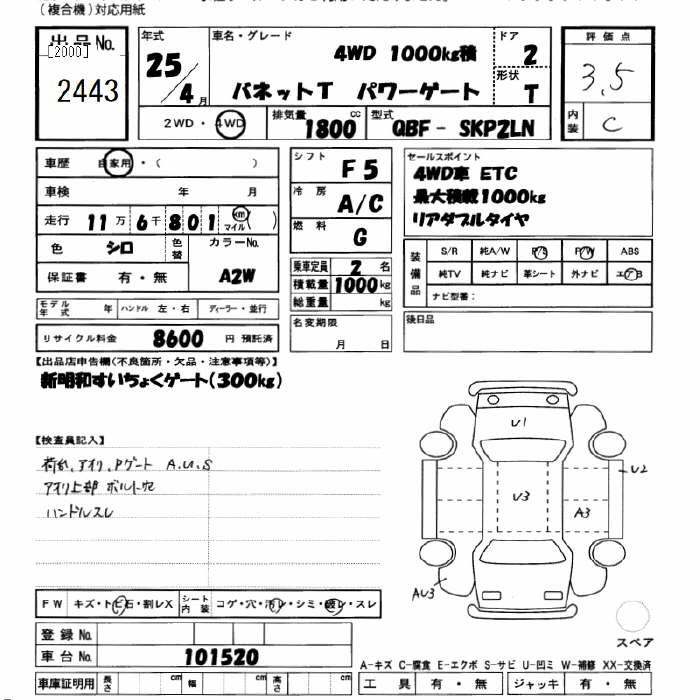 (複合機)対応用紙
出品No.
[2000]
2443
年式
25/4月
車名・グレード
4WD 1000kg積
バネットT パワーゲート
ドア
2
形状
T
評価点
3.5
内装
C
2WD・4WD
排気量
1800cc
型式
QBF - SKP2LN
車歴 自家用・( )
車検 年 月
走行 11万6千801 km マイル( )
色 シロ 色替
カラーNo.
A2W
保証書 有・無
モデル年式 年 ハンドル 左・右 ディーラー・並行
リサイクル料金 8600 円 預託済
シフト F5
冷房 A/C
燃料 G
乗車定員 2 名
積載量 1000 kg
総重量 kg
名変期限
月 日
セールスポイント
4WD車 ETC
最大積載1000kg
リアダブルタイヤ
装備品
S/R 純A/W P/S P/W ABS
純TV 純ナビ 革シート 外ナビ エアB
ナビ型番：
後日品
【出品店申告欄(不良箇所・欠品・注意事項等)】
新明和すいちょくゲート(300kg)
【検査員記入】
荷台、アオリ、Pゲート A.U.S
アオリ上部 ボルト穴
ハンドルスレ
U1
U2
U3
A3
AU3
スペア
FW キズ・トビ石・割レX シート内装 コゲ・穴・汚レ・シミ・破レ・スレ
登録No.
車台No. 101520
車庫証明用 長さ cm 幅 cm 高さ cm
A-キズ C-腐食 E-エクボ S-サビ U-凹ミ W-補修 XX-交換済
工具 有・無 ジャッキ 有・無